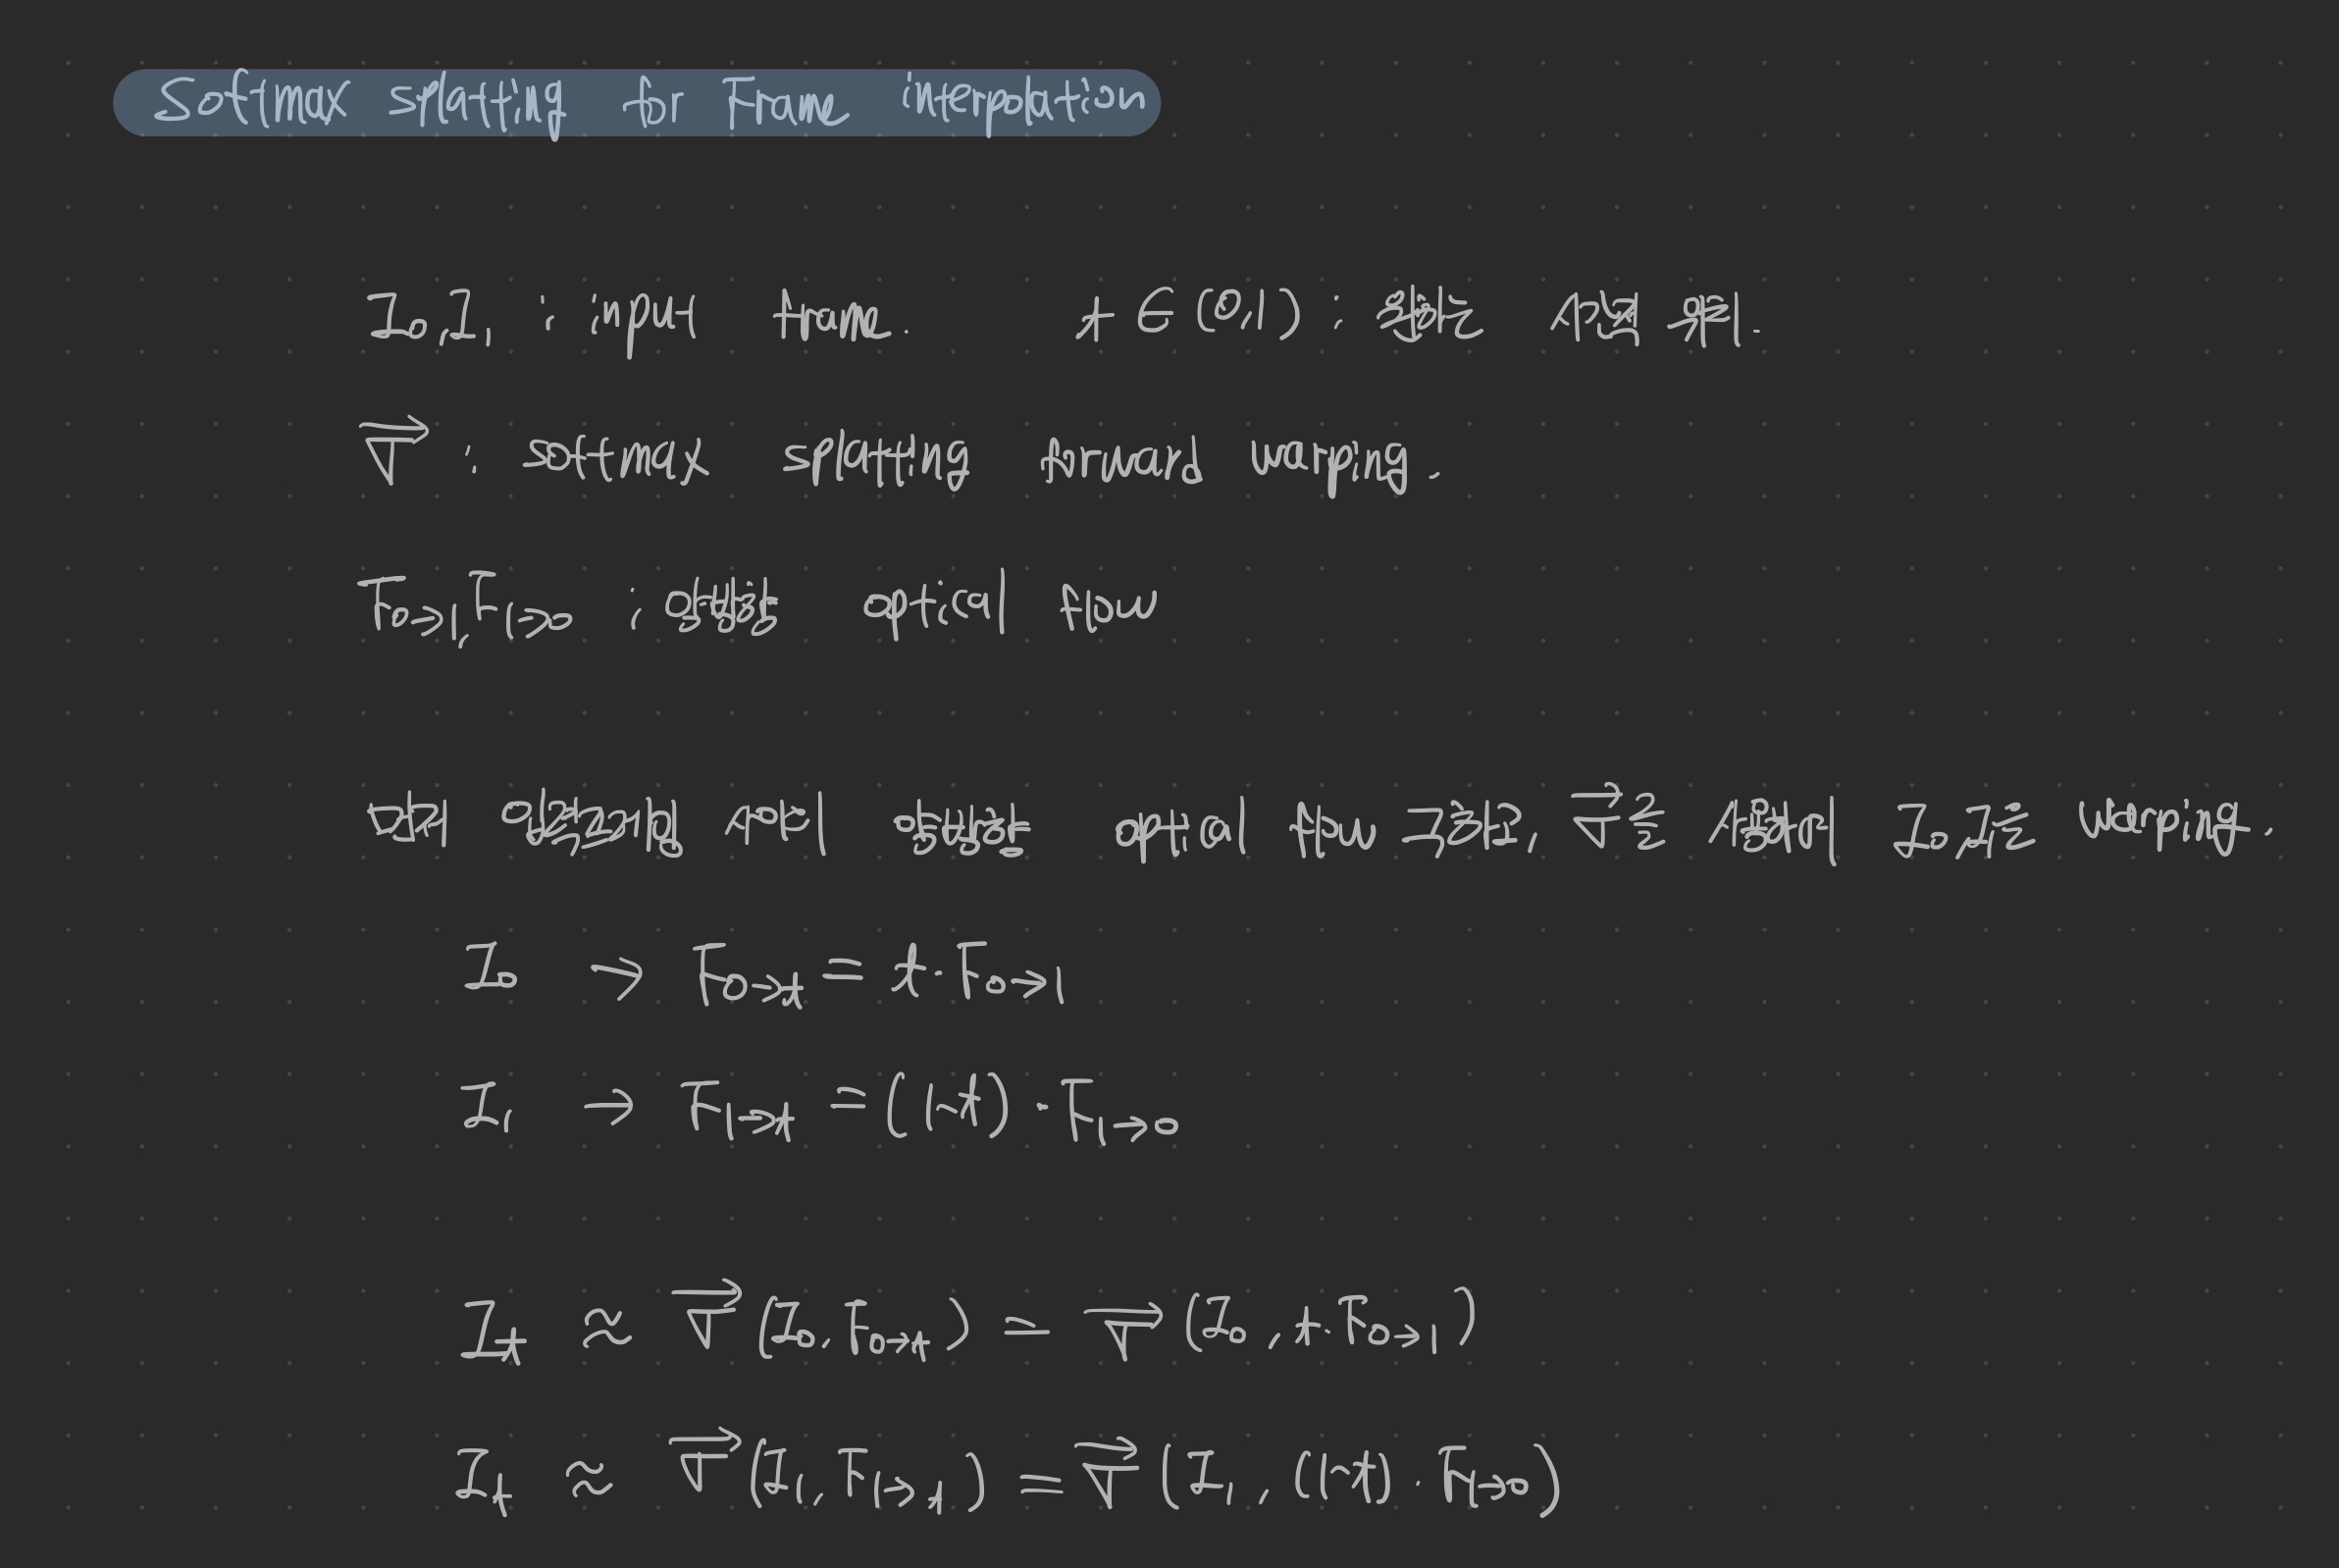 Softmax splatting for Frame interpolation
I₀, I₁ : input frame. t ∈ (0, 1) : 원하는 시간점 위치.
→∇ : softmax splatting forward warping.
F₀→₁, F₁→₀ : 양방향 optical flow
먼저 사이의 양방향 optical flow 구하고, →∇를 사용해서 I₀, I₁을 warping,
I₀ → F₀→t = t · F₀→₁
I₁ → F₁→t = (1-t) · F₁→₀
It ≈ →∇(I₀, F₀→t) = →∇(I₀, t · F₀→₁)
It ≈ →∇(I₁, F₁→t) = →∇(I₁, (1-t) · F₁→₀)